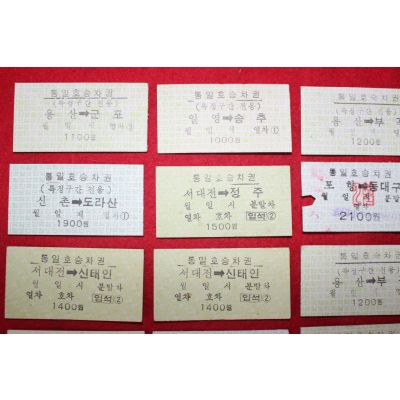 통일호승차권
(특정구간 전용)
용 산➡군 포
월 일 제 열차①
1100원
통일호승차권
(특정구간 전용)
일 영➡송 추
월 일 제 열차①
1000원
통일호승차
(특정구간
용 산➡부
월 일 제
1200
통일호승차권
(특정구간 전용)
신 촌➡도라산
월 일 제 열차①
1900원
통일호승차권
서대전➡정 주
월 일 시 분발차
열차 호차 [입석]②
1500원
통일호승차권
포 항➡동대구
월 일
2100원
통일호승차권
서대전➡신태인
월 일 시 분발차
열차 호차 [입석]②
1400원
통일호승차권
서대전➡신태인
월 일 시 분발차
열차 호차 [입석]②
1400원
통일호승차
(특정구간
용 산➡부
월 일 제
1200